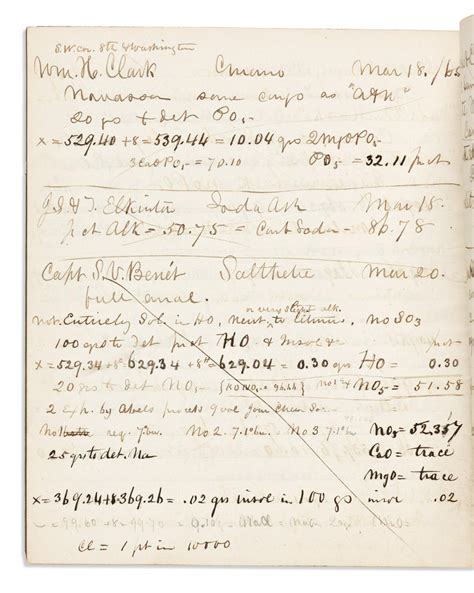 S.W. cor. 8th & Washington
Wm. H. Clark Guano Mar 18. /65
Navassa same cargo as "A&H"
20 gs to det PO5
x = 529.40 + 8 = 539.44 = 10.04 grs 2MgOPO5
3CaOPO5 = 70.10 PO5 = 32.11 p ct
J. & T. Elkinton Soda Ash Mar 15.
p ct Alk = 50.75 = Carb Soda = 86.78
Capt S. V. Benét Saltpetre Mar 20.
full anal.
not Entirely Sol. in HO, neut to litmus, no SO3
or very slight alk.
100 grs to det p ct HO & insol &c
x = 529.34 + 8 = 629.34 + 8 = 629.04 = 0.30 grs HO = 0.30
20 grs to det NO5 NO5 = 51.58
2 Exp. by Abels process gave
No 2. 7.1 No 3. 7.1 NO5 = 52.357
25 grs to det. Na CaO = trace
MgO = trace
x = 369.24 + 8 369.26 = .02 grs insol in 100 gs insol .02
Cl = 1 pt in 10000